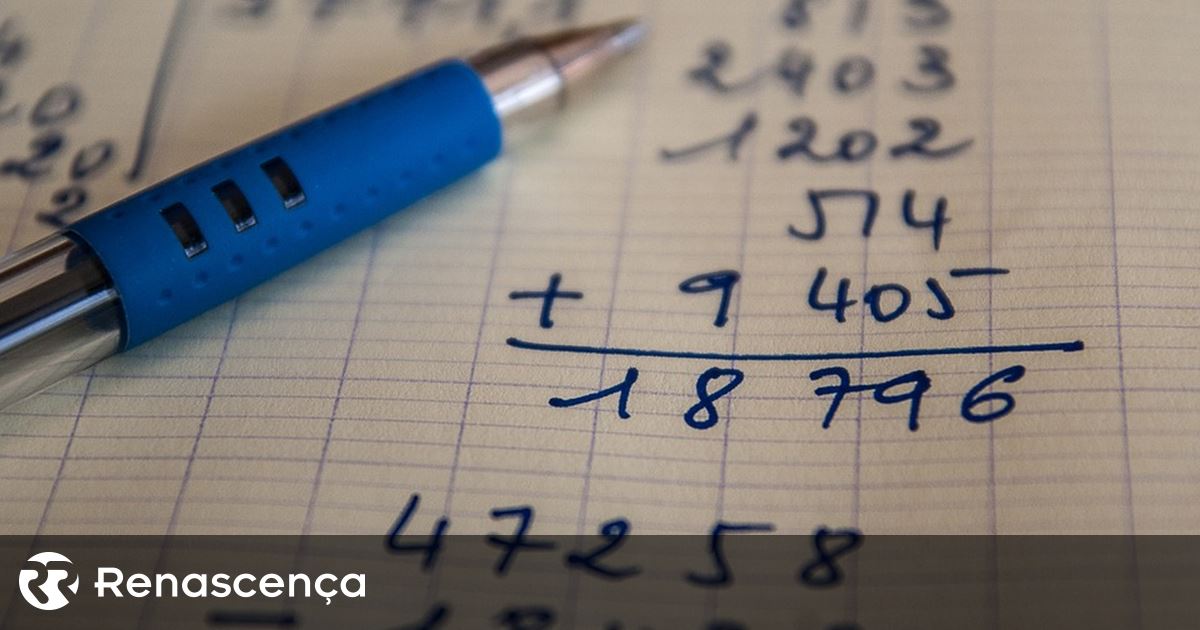 20
20
2
2403
1202
514
+ 9 405
18 796
47258
Renascença